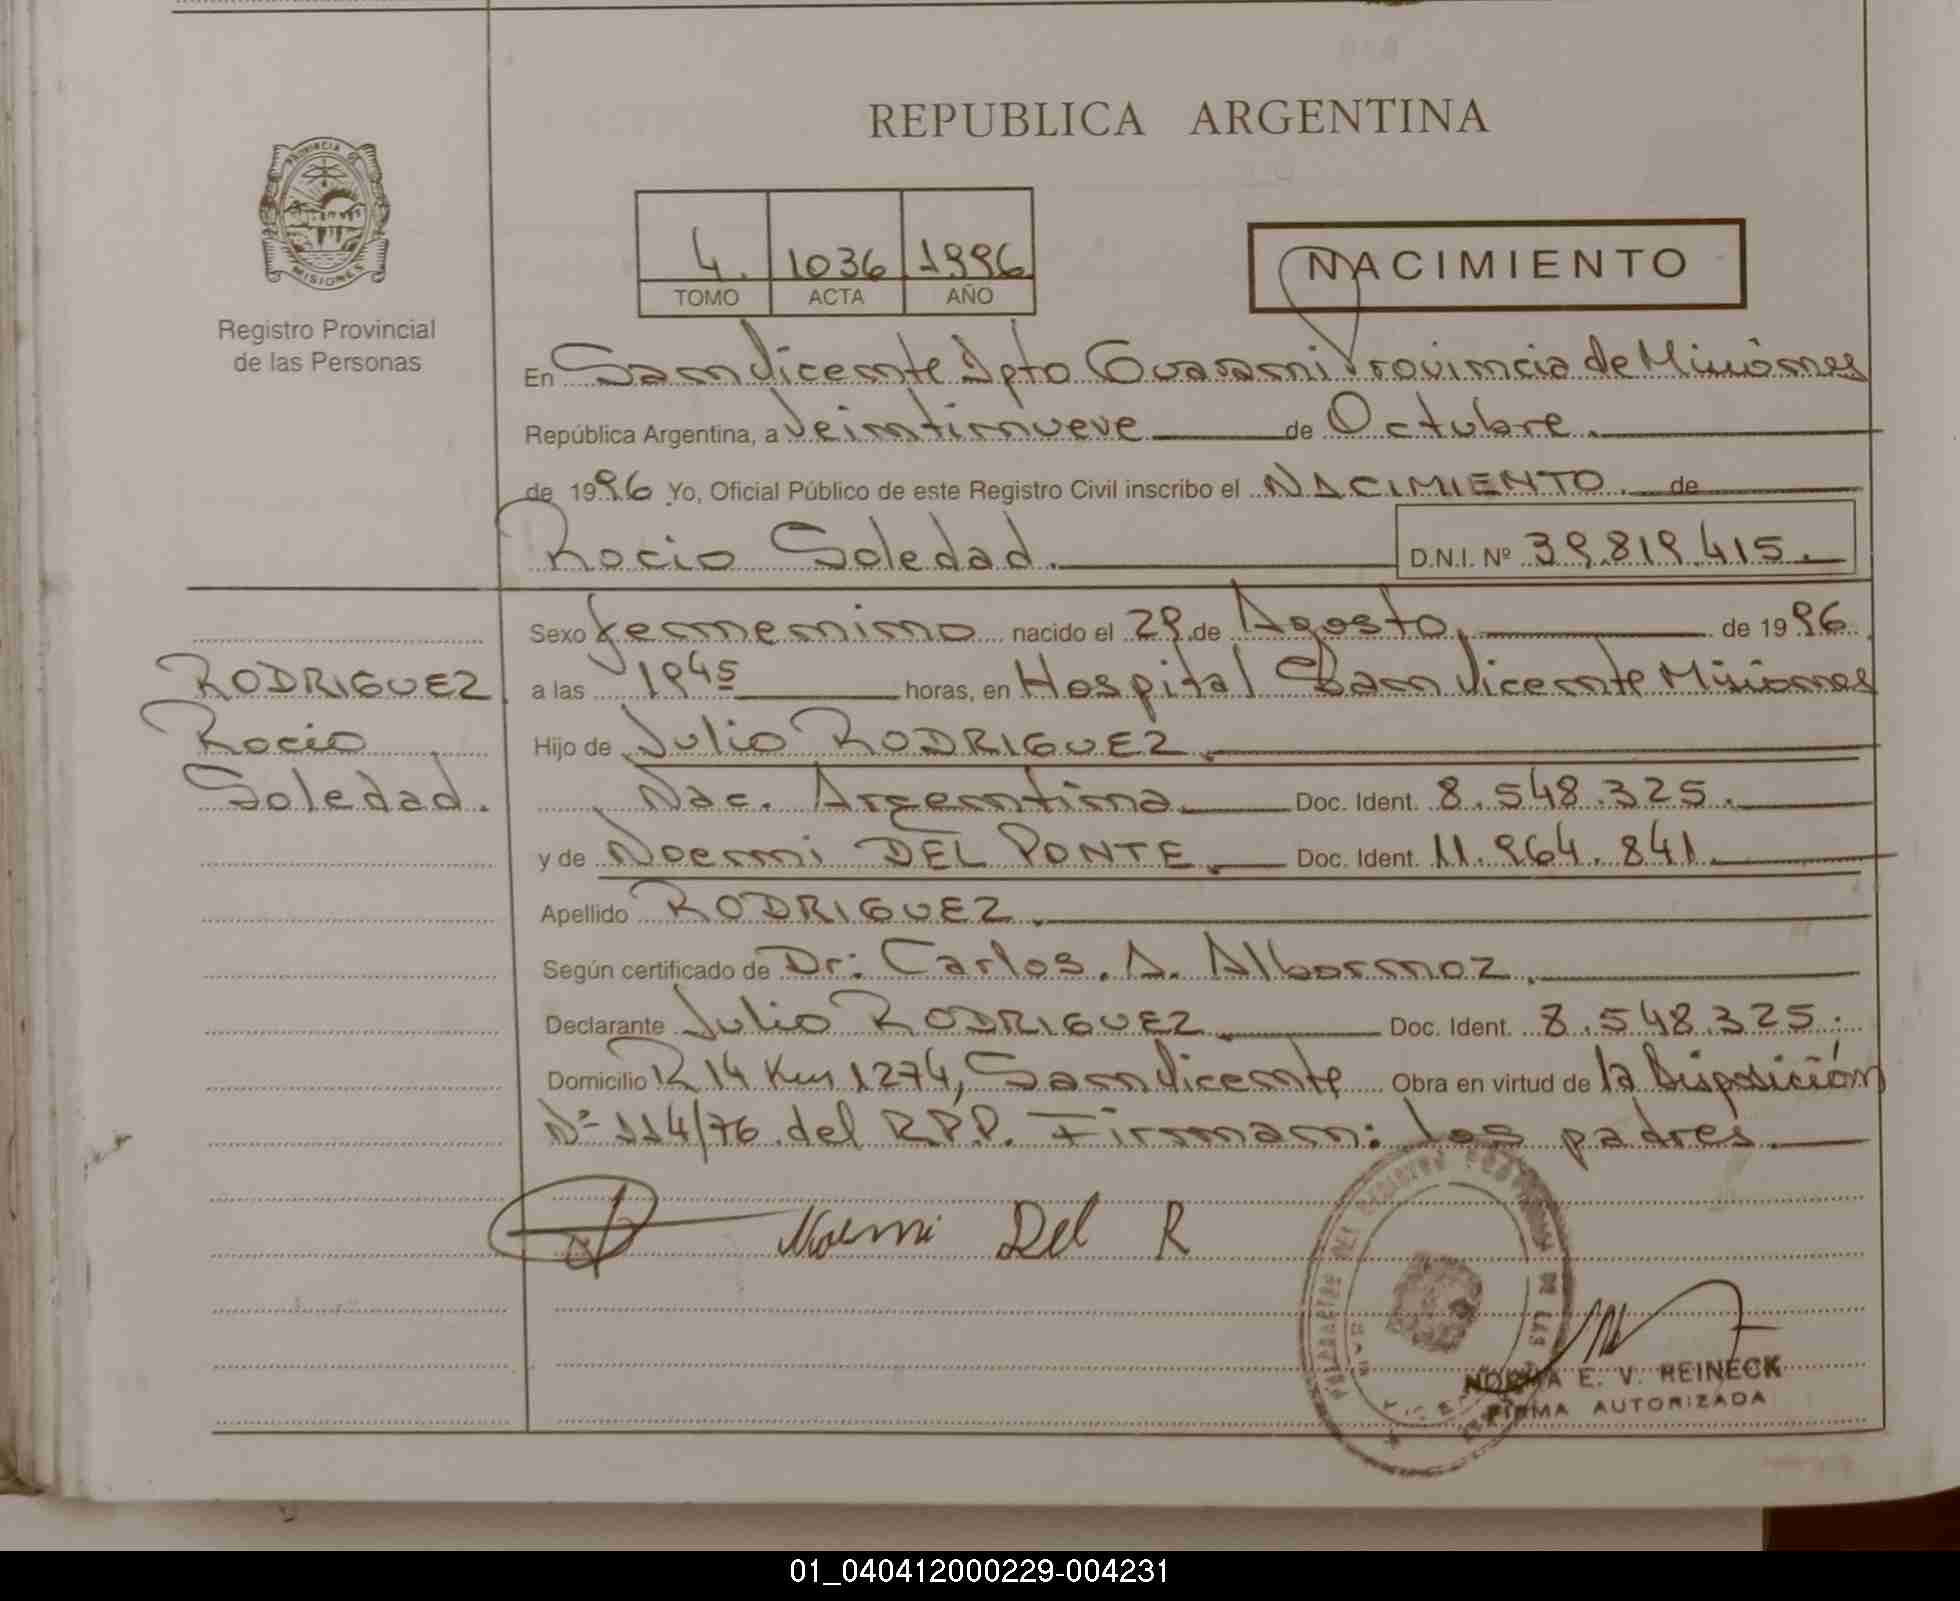 REPUBLICA ARGENTINA
PROVINCIA DE
MISIONES
Registro Provincial
de las Personas
4. 1036 1996
TOMO ACTA AÑO
NACIMIENTO
En San Vicente Dpto Guarani Provincia de Misiones
República Argentina, a Veintinueve de Octubre.
de 1996 Yo, Oficial Público de este Registro Civil inscribo el NACIMIENTO de
Rocio Soledad. D.N.I. Nº 39.819.415.
Sexo femenino nacido el 29 de Agosto, de 1996.
RODRIGUEZ
Rocio
Soledad.
a las 19 45 horas, en Hospital San Vicente Misiones
Hijo de Julio RODRIGUEZ
Nac. Argentina Doc. Ident. 8.548.325.
y de Noemi DEL PONTE. Doc. Ident. 11.964.841.
Apellido RODRIGUEZ.
Según certificado de Dr: Carlos. A. Albornoz.
Declarante Julio RODRIGUEZ Doc. Ident. 8.548.325.
Domicilio R 14 Km 1274, San Vicente Obra en virtud de la Disposición
Nº 114/76 del R.P.P. Firman: los padres.
Noemi Del R
NORMA E. V. REINECK
FIRMA AUTORIZADA
01_040412000229-004231